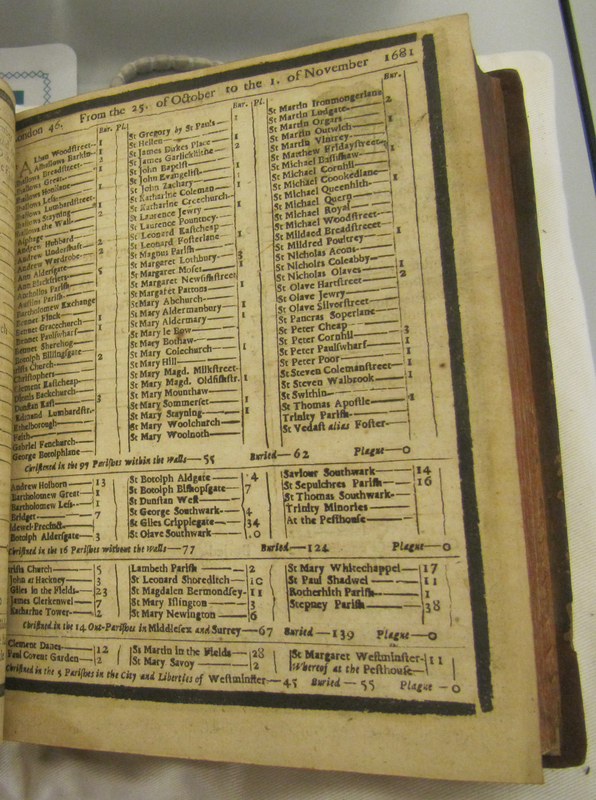 London 46. From the 25. of October to the 1. of November 1681
Bur. Pl.
Alban Woodstreet 1
Alhallows Barkin 1
Alhallows Breadstreet 1
Alhallows Great
Alhallows Honilane 1
Alhallows Less
Alhallows Lumbardstreet 1
Alhallows Stayning 2
Alhallows the Wall
Alphage
Andrew Hubbard 2
Andrew Undershaft 2
Andrew Wardrobe 2
Ann Aldersgate 5
Ann Blackfriers
Antholins Parish
Austins Parish
Bartholomew Exchange
Bennet Finck
Bennet Gracechurch 1
Bennet Paulswharf 1
Bennet Sherehog
Botolph Billingsgate
Christs Church 2
Christophers
Clement Eastcheap
Dionis Backchurch
Dunstan East 3
Edmund Lumbardstr.
Ethelborough
Faith
Gabriel Fenchurch
George Botolphlane
Bur. Pl.
St Gregory by St Pauls 1
St Hellen
St James Dukes Place 1
St James Garlickhithe 2
St John Baptist
St John Evangelist
St John Zachary 1
St Katharine Coleman
St Katharine Creechurch
St Laurence Jewry 1
St Laurence Pountney
St Leonard Eastcheap
St Leonard Fosterlane 1
St Magnus Parish
St Margaret Lothbury 3
St Margaret Moses 1
St Margaret Newfishstreet
St Margaret Pattons
St Mary Abchurch
St Mary Aldermanbury
St Mary Aldermary
St Mary le Bow
St Mary Bothaw
St Mary Colechurch
St Mary Hill
St Mary Magd. Milkstreet
St Mary Magd. Oldfishstr. 1
St Mary Mounthaw
St Mary Sommerset 1
St Mary Stayning 1
St Mary Woolchurch
St Mary Woolnoth
Bur.
St Martin Ironmongerlane
St Martin Ludgate 2
St Martin Orgars
St Martin Outwich 1
St Martin Vintrey
St Matthew Fridaystreet
St Michael Bassishaw
St Michael Cornhil
St Michael Crookedlane
St Michael Queenhith
St Michael Quern
St Michael Royal
St Michael Woodstreet
St Mildred Breadstreet
St Mildred Poultrey
St Nicholas Acons
St Nicholas Coleabby
St Nicholas Olaves
St Olave Hartstreet
St Olave Jewry
St Olave Silverstreet
St Pancras Soperlane
St Peter Cheap
St Peter Cornhil 3
St Peter Paulswharf 1
St Peter Poor 1
St Steven Colemanstreet
St Steven Walbrook 1
St Swithin
St Thomas Apostle 1
Trinity Parish
St Vedast alias Foster
Christened in the 97 Parishes within the Walls—55 Buried—62 Plague—0
Andrew Holborn 13
Bartholomew Great 1
Bartholomew Less 1
Bridget 7
Bridewel Precinct
Botolph Aldersgate 3
St Botolph Aldgate 4
St Botolph Bishopsgate 7
St Dunstan West
St George Southwark 4
St Giles Cripplegate 34
St Olave Southwark .0
Saviour Southwark 14
St Sepulchres Parish 16
St Thomas Southwark
Trinity Minories
At the Pesthouse
Christened in the 16 Parishes without the Walls—77 Buried—124 Plague—0
Christs Church 5
John at Hackney 3
Giles in the Fields 23
James Clerkenwel 7
Katharine Tower 2
Lambeth Parish 2
St Leonard Shoreditch 10
St Magdalen Bermondsey 11
St Mary Islington 3
St Mary Newington 6
St Mary Whitechappel 17
St Paul Shadwel 11
Rotherhith Parish 1
Stepney Parish 38
Christened in the 14 Out-Parishes in Middlesex and Surrey—67 Buried—139 Plague—0
Clement Danes 12
Paul Covent Garden 2
St Martin in the Fields 28
St Mary Savoy 2
St Margaret Westminster 11
Whereof at the Pesthouse
Christened in the 5 Parishes in the City and Liberties of Westminster—45 Buried—55 Plague—0